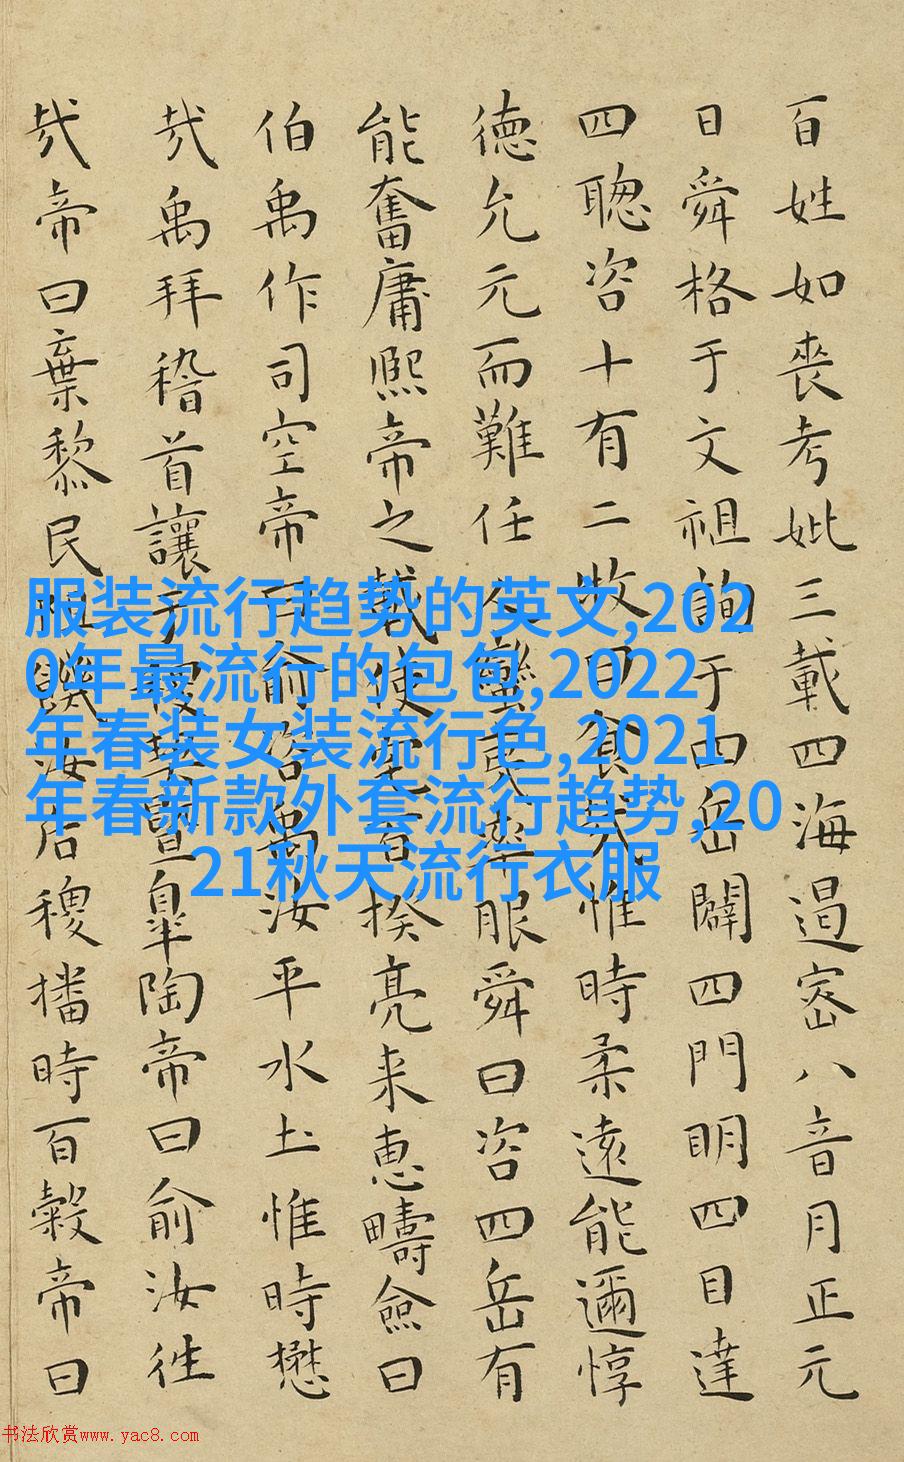 百姓如喪考妣三載四海遏密八音月正元
日舜格于文祖詢于四岳闢四門明四目達
四聰咨十有二牧曰食哉惟時柔遠能邇惇
德允元而難任人蠻夷率服舜曰咨四岳有
能奮庸熙帝之載使宅百揆亮来惠疇僉曰
伯禹作司空帝曰俞咨禹汝平水土惟時懋
哉禹拜稽首讓于稷契暨皐陶帝曰俞汝往
哉帝曰棄黎民阻饑汝后稷播時百穀帝曰
服装流行趋势的英文,202
0年最流行的包包,2022
年春装女装流行色,2021
年春新款外套流行趋势,20
21秋天流行衣服
书法欣赏www.yac8.com